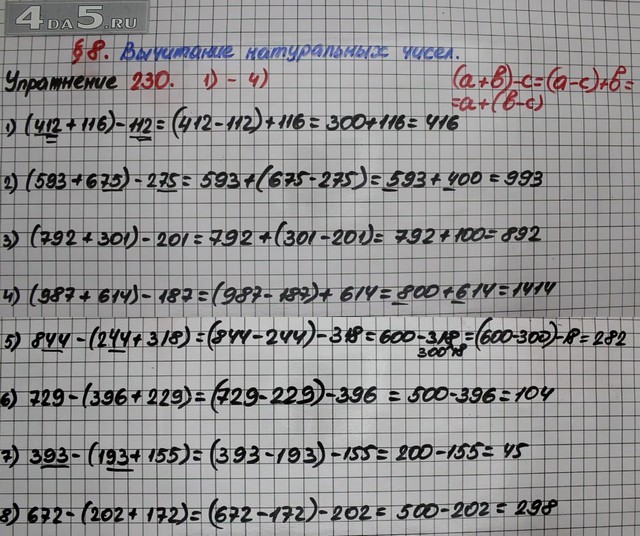 4DA5.RU
§8. Вычитание натуральных чисел.
Упражнение 230. 1) - 4)
(a+в)-c=(a-c)+в=
=a+(в-c)
1) (412+116)-112=(412-112)+116=300+116=416
2) (593+675)-275=593+(675-275)=593+400=993
3) (792+301)-201=792+(301-201)=792+100=892
4) (987+614)-187=(987-187)+614=800+614=1414
5) 844-(244+318)=(844-244)-318=600-318=(600-300)-18=282
300 18
6) 729-(396+229)=(729-229)-396=500-396=104
7) 393-(193+155)=(393-193)-155=200-155=45
8) 672-(202+172)=(672-172)-202=500-202=298